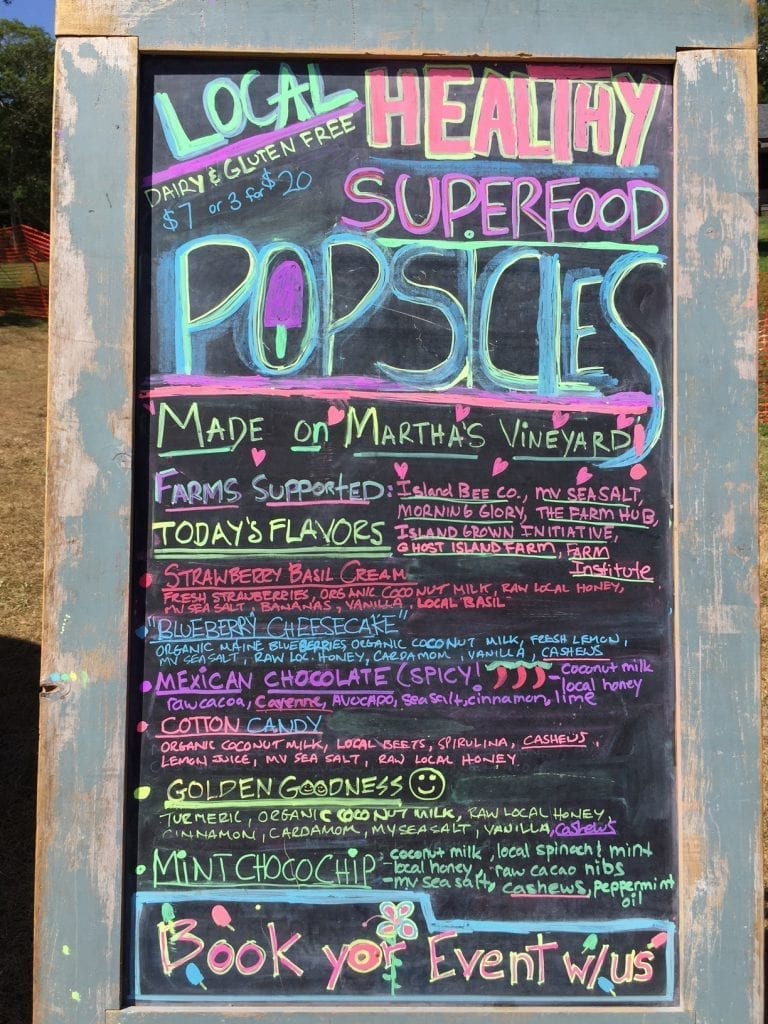 LOCAL HEALTHY
DAIRY & GLUTEN FREE
$7 or 3 for $20
SUPERFOOD
POPSICLES
MADE on MARTHA'S VINEYARD!
FARMS SUPPORTED: ISLAND BEE CO., MV SEA SALT,
MORNING GLORY, THE FARM HUB,
ISLAND GROWN INITIATIVE,
GHOST ISLAND FARM, FARM
INSTITUTE
TODAY'S FLAVORS
STRAWBERRY BASIL CREAM
FRESH STRAWBERRIES, ORGANIC COCONUT MILK, RAW LOCAL HONEY,
MV SEA SALT, BANANAS, VANILLA, LOCAL BASIL
"BLUEBERRY CHEESECAKE"
ORGANIC MAINE BLUEBERRIES ORGANIC COCONUT MILK, FRESH LEMON,
MV SEA SALT, RAW LOC. HONEY, CARDAMOM, VANILLA, CASHEWS
MEXICAN CHOCOLATE (SPICY! -coconut milk
-local honey
raw cacoa, Cayenne, AVOCADO, sea salt, cinnamon, lime
COTTON CANDY
ORGANIC COCONUT MILK, LOCAL BEETS, SPIRULINA, CASHEWS,
LEMON JUICE, MV SEA SALT, RAW LOCAL HONEY
GOLDEN GOODNESS
TURMERIC, ORGANIC COCONUT MILK, RAW LOCAL HONEY,
CINNAMON, CARDAMOM, MV SEA SALT, VANILLA, cashews
MINT CHOCO CHIP -coconut milk, local spinach & mint
-local honey, raw cacao nibs
-mv sea salt, cashews, peppermint
oil
Book yor Event w/us